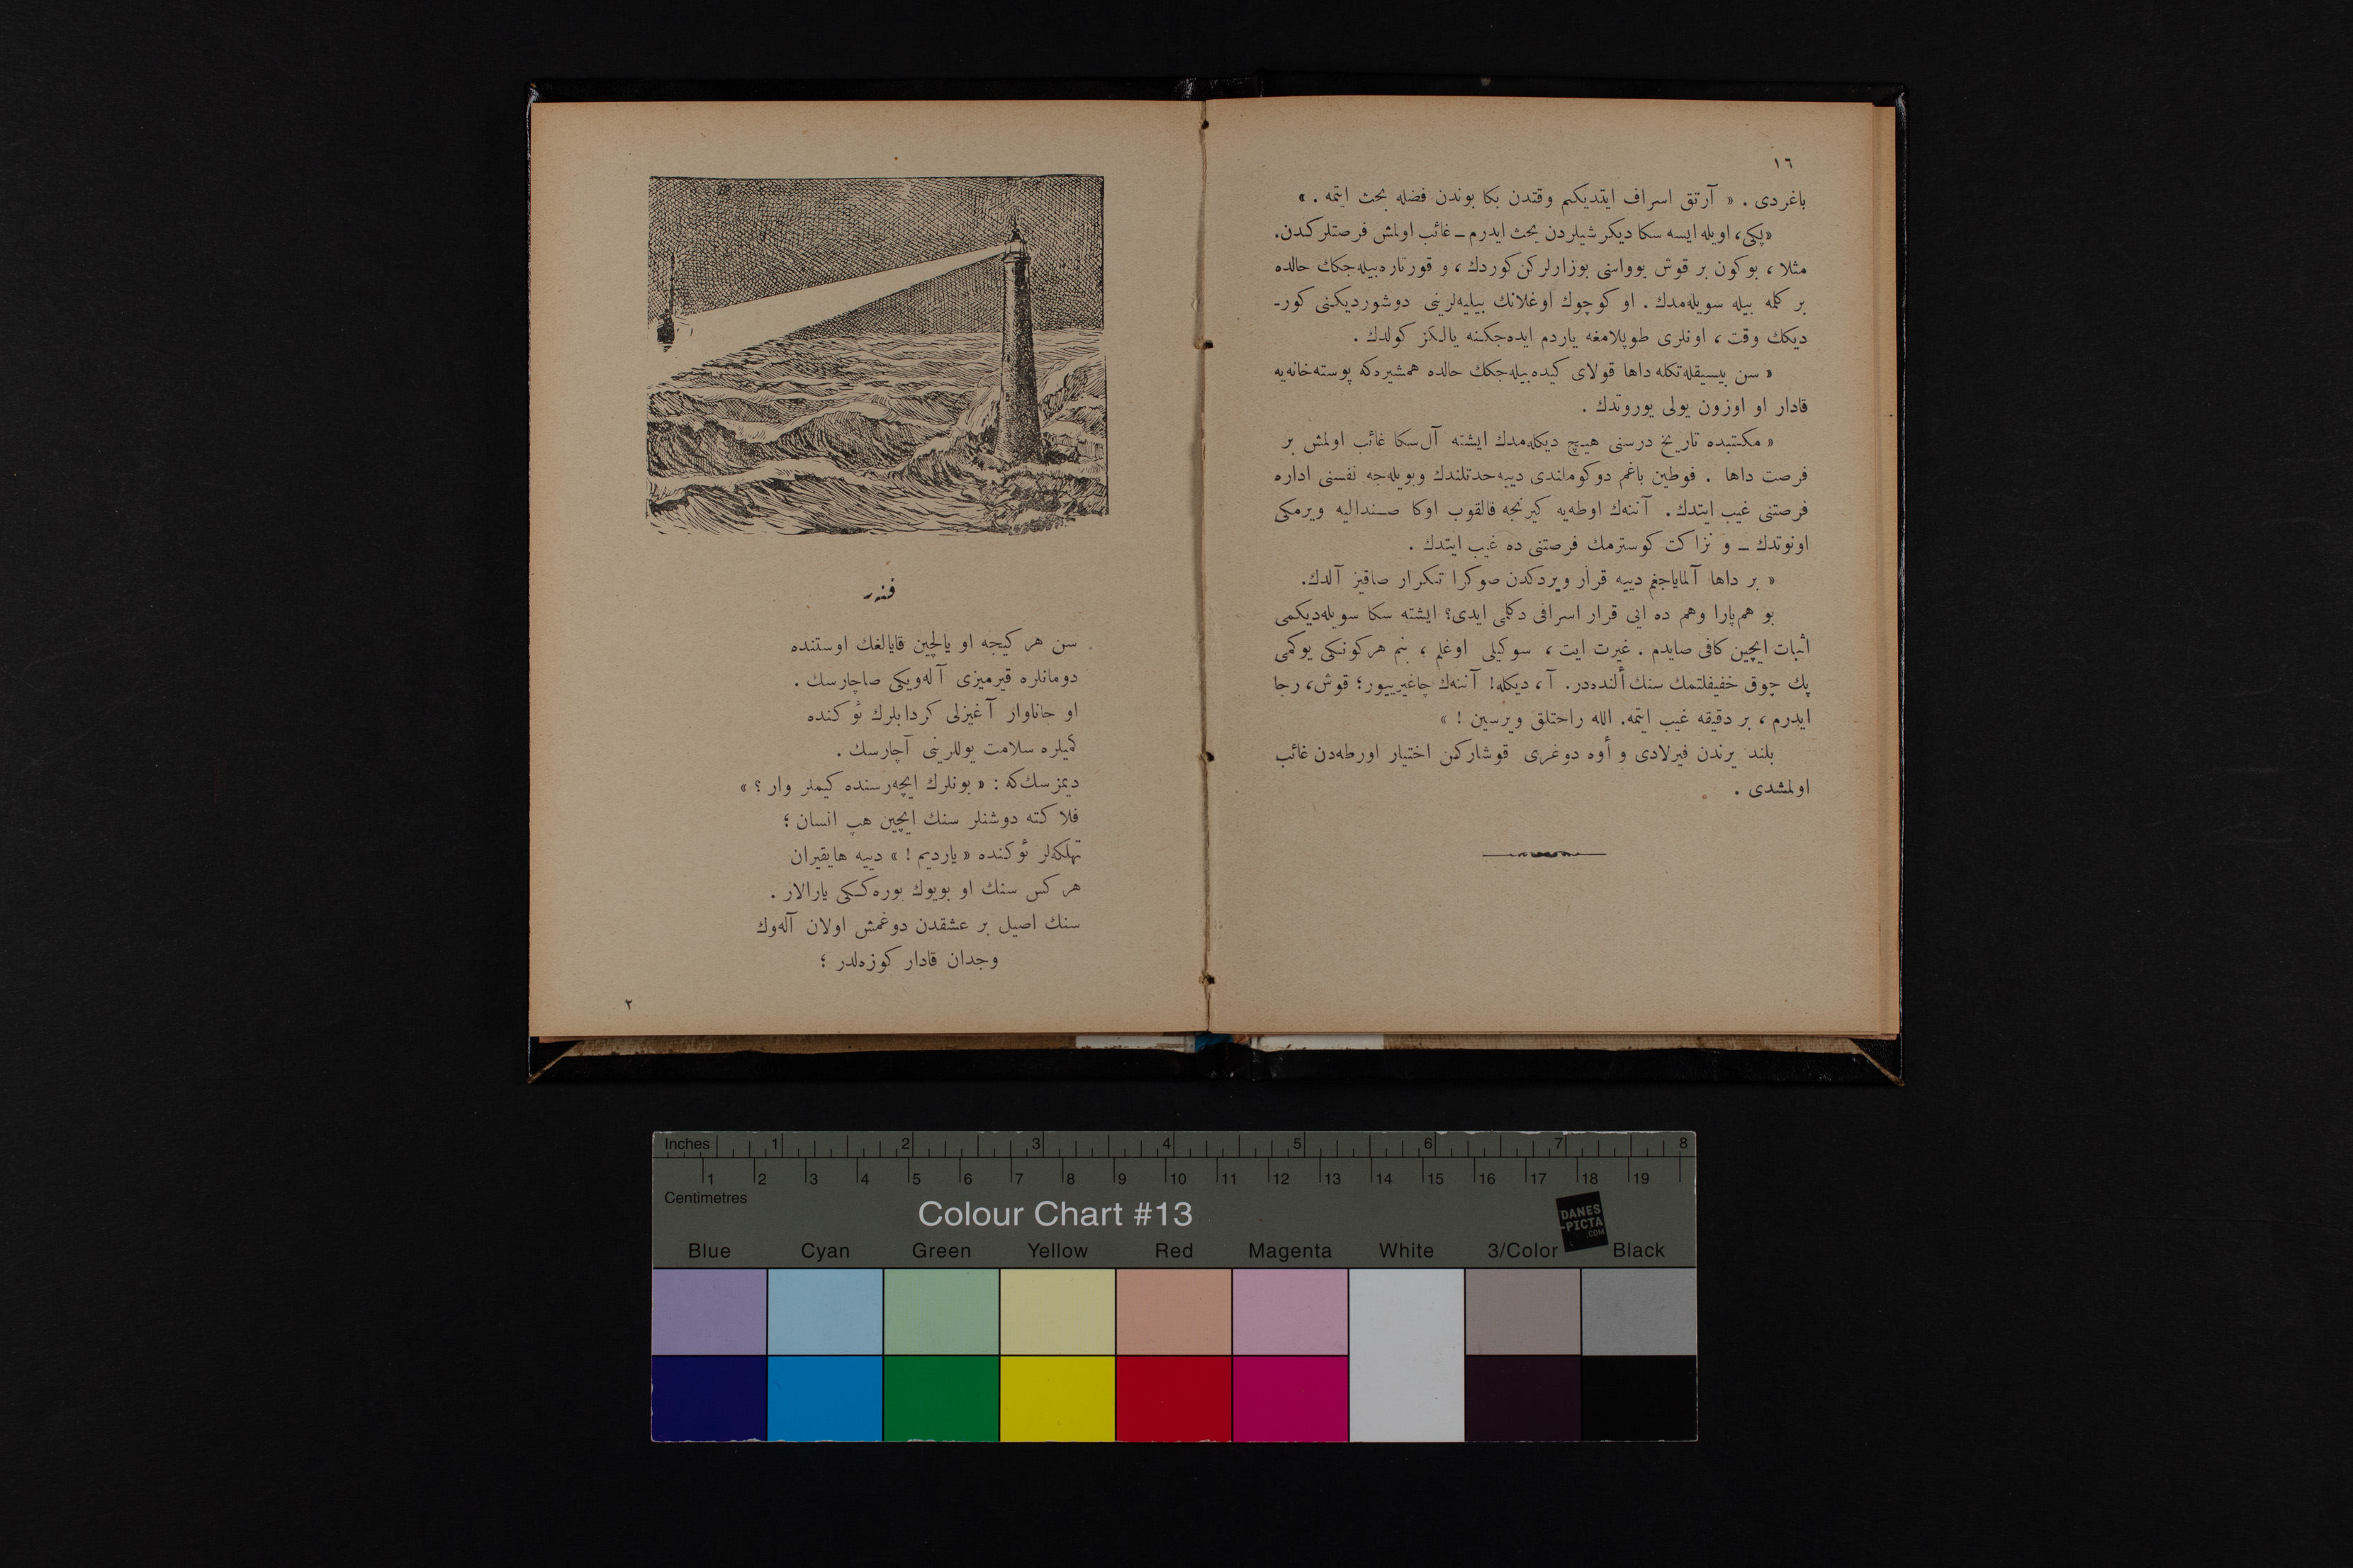 ١٦
باغردی . « آرتق اسراف ایتدیكم وقتدن بكا بوندن فضله بحث ایتمه . »
«پكی، اویله ایسه سكا دیكر شیلردن بحث ایدرم ـ غائب اولمش فرصتلركدن.
مثلا ، بو كون بر قوش یوواسنی بوزارلركن كوردك ، و قورتاره‌بیله‌جكك حالده
بر كله بیله سویله‌مدك . او كوچوك اوغلانك بیلیه‌لرینی دوشوردیكنی كور-
دیكك وقت ، اونلری طوپلامغه یاردم ایده‌جكنه یالكز كولدك .
« سن بیسیقله‌تكله داها قولای كیده‌بیله‌جكك حالده همشیره‌كه پوسته‌خانه‌یه
قادار او اوزون یولی یوروتدك .
« مكتبده تاریخ درسنی هیچ دیكله‌مدك ایشته آل سكا غائب اولمش بر
فرصت داها . فوطین باغم دوكوملندی دییه حدتلندك وبویله‌جه نفسنی اداره
فرصتنی غیب ایتدك . آننه‌ك اوطه‌یه كیرنجه قالقوب اوكا صندالیه ویرمكی
اونوتدك ـ و نزاكت كوسترمك فرصتنی ده غیب ایتدك .
« بر داها آلمایاجغم دییه قرار ویردكدن صوكرا تكرار صاقیز آلدك.
بو هم پارا وهم ده ایی قرار اسرافی دكلمی ایدی؟ ایشته سكا سویله‌دیكمی
اثبات ایچین كافی صایدم . غیرت ایت ، سوكیلی اوغلم ، بنم هركونكی یوكمی
پك چوق خفیفلتمك سنك ألنده‌در. آ ، دیكله! آننه‌ك چاغیرییور؛ قوش، رجا
ایدرم ، بر دقیقه غیب ایتمه. الله راحتلق ویرسین ! »
بلند یرندن فیرلادی و أوه دوغری قوشاركن اختیار اورطه‌دن غائب
اولمشدی .
فنر
سن هر كیجه او یالچین قایالغك اوستنده
دومانلره قیرمیزی آله‌ویكی صاچارسك .
او جاناوار آغیزلی كردابلرك ئوكنده
كمیلره سلامت یوللرینی آچارسك .
دیمزسك‌كه : « بونلرك ایچه‌رسنده كیملر وار ؟ »
فلاكته دوشنلر سنك ایچین هپ انسان ؛
تهلكه‌لر ئوكنده « یاردیم ! » دییه هایقیران
هر كس سنك او بویوك یوره‌ككی یارالار .
سنك اصیل بر عشقدن دوغمش اولان آله‌وك
وجدان قادار كوزه‌لدر ؛
٢
Inches 1 2 3 4 5 6 7 8
1 2 3 4 5 6 7 8 9 10 11 12 13 14 15 16 17 18 19
Centimetres
Colour Chart #13
DANES
-PICTA
.COM
Blue Cyan Green Yellow Red Magenta White 3/Color Black